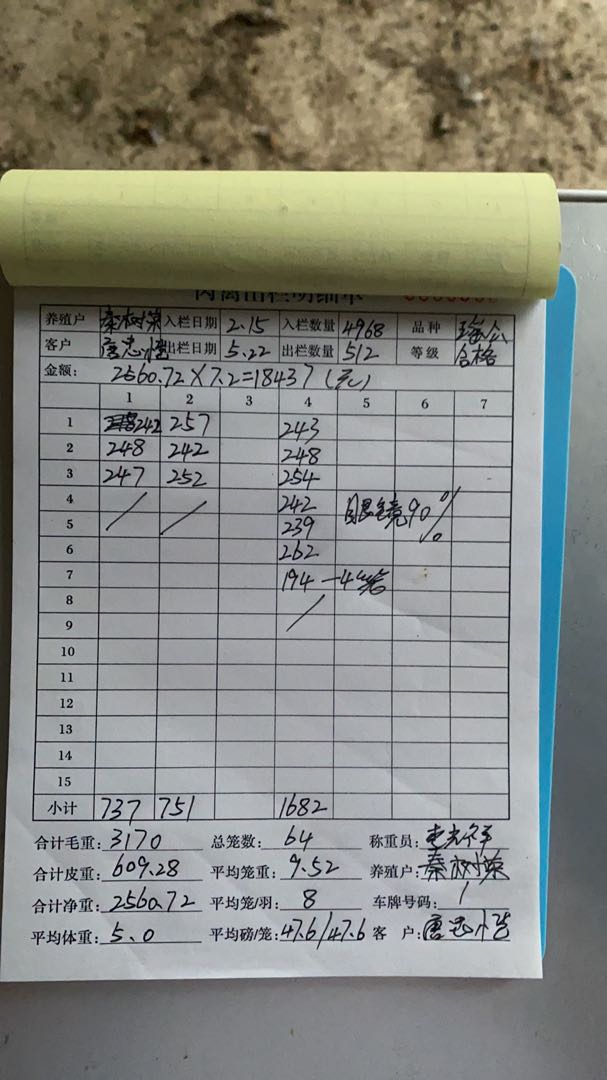 养殖户 秦树荣 入栏日期 2.15 入栏数量 4968 品种
客户 唐志 出栏日期 5.22 出栏数量 512 等级 合格
金额: 2560.72×7.2=18437(元)
1 2 3 4 5 6 7
1 242 257 243
2 248 242 248
3 247 252 254
4 242 眼镜90%
5 239
6 262
7 194 一4笼
8
9
10
11
12
13
14
15
小计 737 751 1682
合计毛重: 3170 总笼数: 64 称重员:
合计皮重: 609.28 平均笼重: 9.52 养殖户: 秦树荣
合计净重: 2560.72 平均笼/羽: 8 车牌号码: /
平均体重: 5.0 平均磅/笼: 47.6/47.6 客 户: 唐志